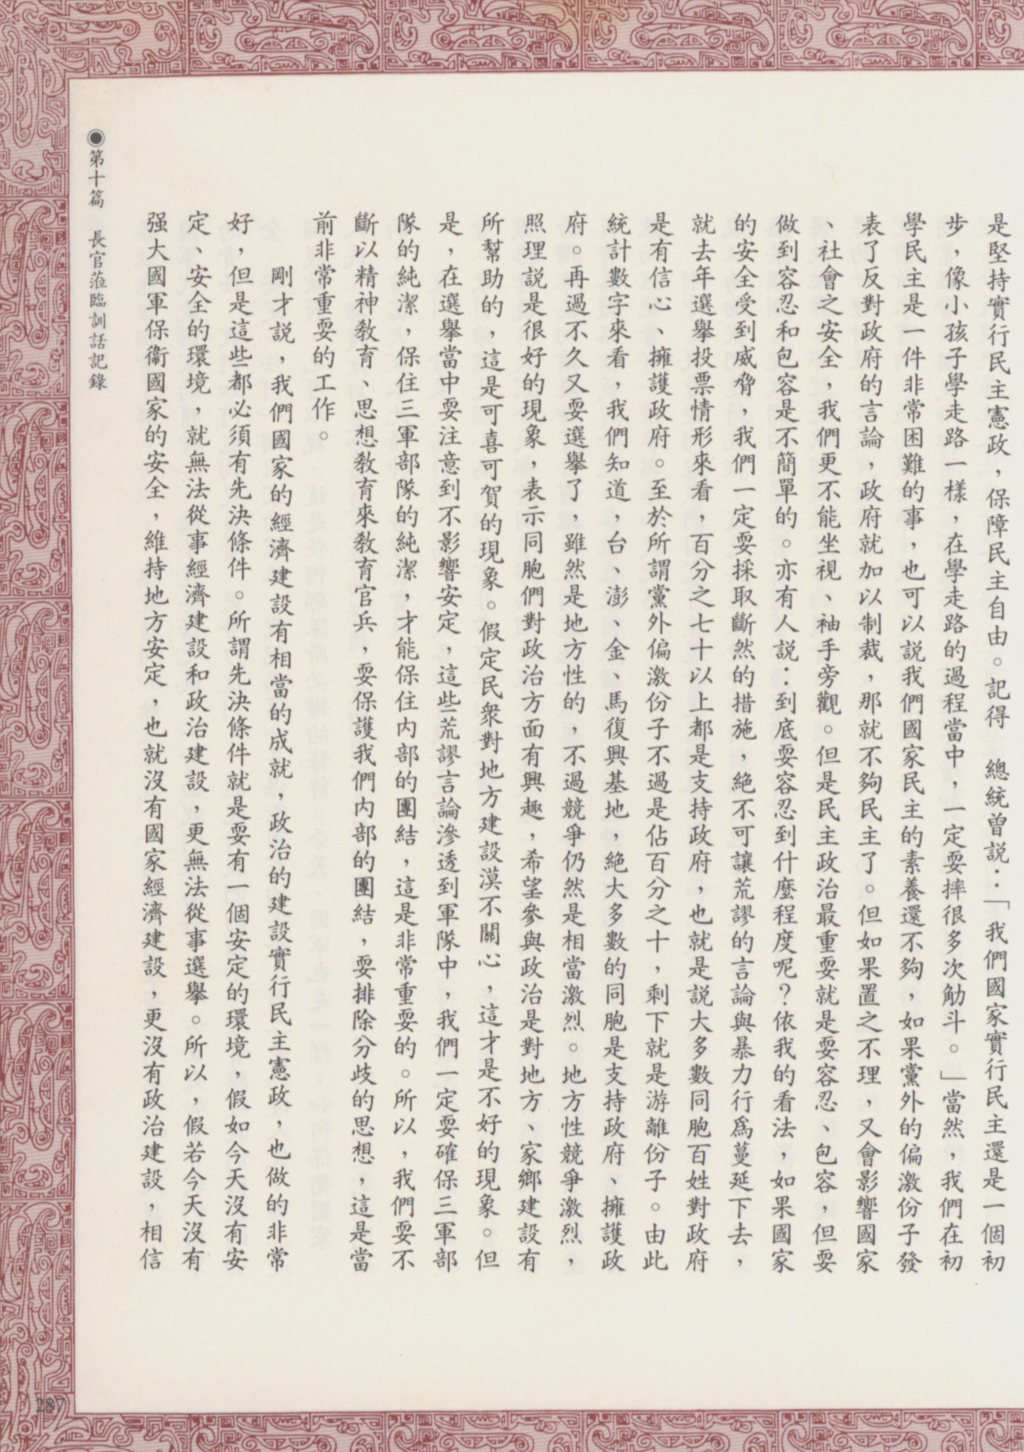 是堅持實行民主憲政，保障民主自由。記得　總統曾説：「我們國家實行民主還是一個初
步，像小孩子學走路一樣，在學走路的過程當中，一定要摔很多次觔斗。」當然，我們在初
學民主是一件非常困難的事，也可以説我們國家民主的素養還不夠，如果黨外的偏激份子發
表了反對政府的言論，政府就加以制裁，那就不夠民主了。但如果置之不理，又會影響國家
、社會之安全，我們更不能坐視、袖手旁觀。但是民主政治最重要就是要容忍、包容，但要
做到容忍和包容是不簡單的。亦有人説：到底要容忍到什麼程度呢？依我的看法，如果國家
的安全受到威脅，我們一定要採取斷然的措施，絕不可讓荒謬的言論與暴力行爲蔓延下去，
就去年選舉投票情形來看，百分之七十以上都是支持政府，也就是説大多數同胞百姓對政府
是有信心、擁護政府。至於所謂黨外偏激份子不過是佔百分之十，剩下就是游離份子。由此
統計數字來看，我們知道，台、澎、金、馬復興基地，絕大多數的同胞是支持政府、擁護政
府。再過不久又要選舉了，雖然是地方性的，不過競爭仍然是相當激烈。地方性競爭激烈，
照理説是很好的現象，表示同胞們對政治方面有興趣，希望參與政治是對地方、家鄉建設有
所幫助的，這是可喜可賀的現象。假定民衆對地方建設漠不關心，這才是不好的現象。但
是，在選舉當中要注意到不影響安定，這些荒謬言論滲透到軍隊中，我們一定要確保三軍部
隊的純潔，保住三軍部隊的純潔，才能保住内部的團結，這是非常重要的。所以，我們要不
斷以精神教育、思想教育來教育官兵，要保護我們内部的團結，要排除分歧的思想，這是當
前非常重要的工作。
剛才説，我們國家的經濟建設有相當的成就，政治的建設實行民主憲政，也做的非常
好，但是這些都必須有先決條件。所謂先決條件就是要有一個安定的環境，假如今天沒有安
定、安全的環境，就無法從事經濟建設和政治建設，更無法從事選舉。所以，假若今天沒有
强大國軍保衞國家的安全，維持地方安定，也就沒有國家經濟建設，更沒有政治建設，相信
◉第十篇　長官蒞臨訓話記錄
287